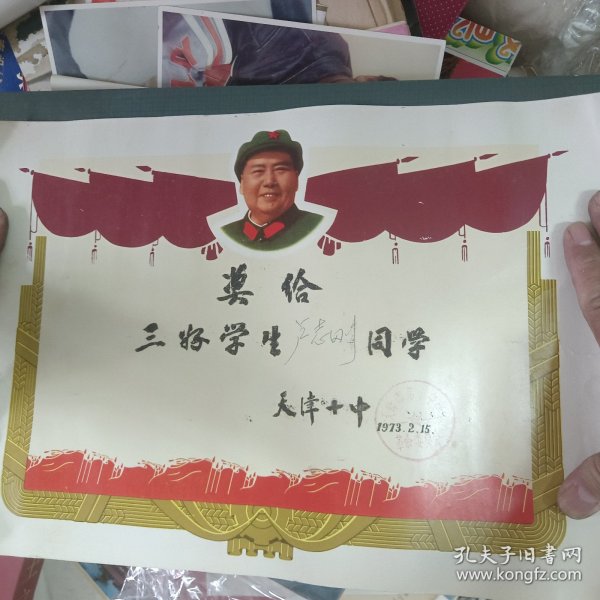 奖给
三好学生卢志刚同学
天津十中
1973.2.15.
孔夫子旧书网
www.kongfz.com